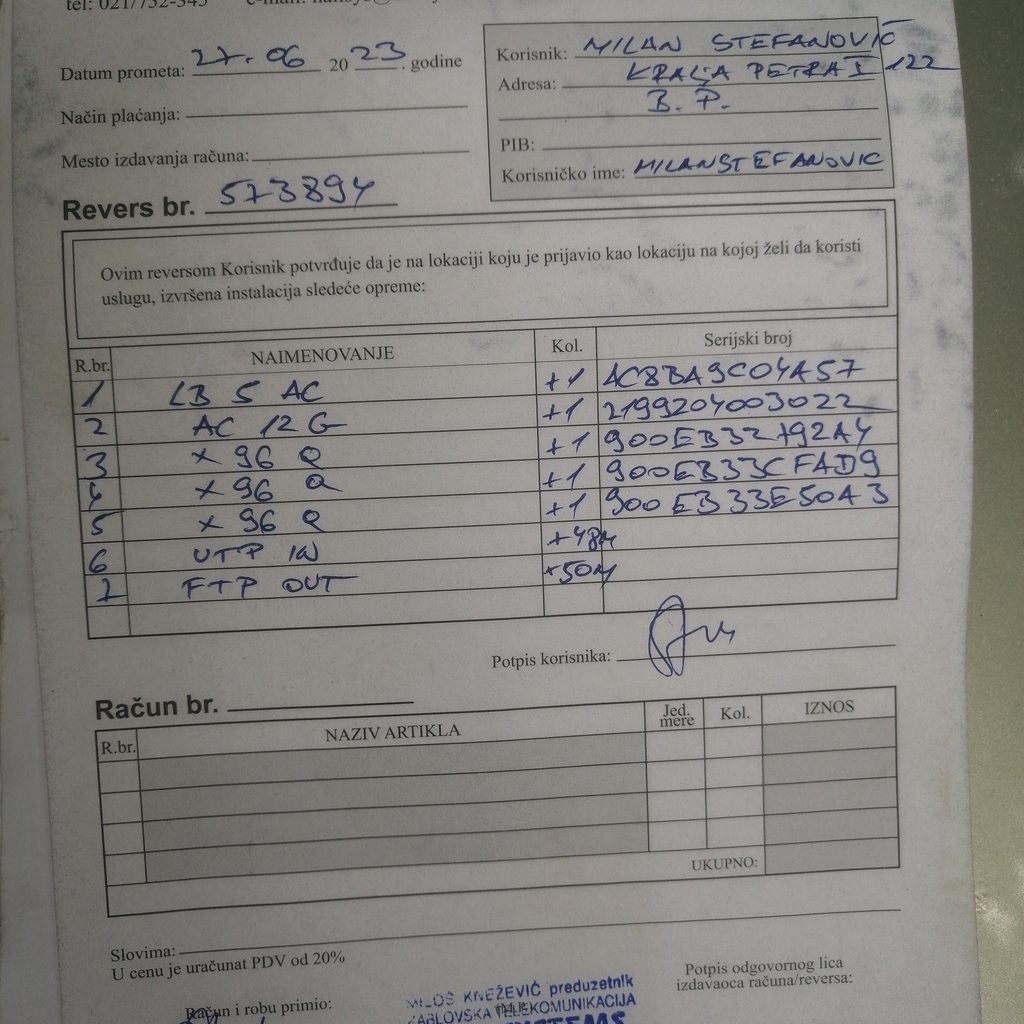 tel: 021/752-545
Datum prometa: 27.06 2023. godine
Način plaćanja:
Mesto izdavanja računa:
Korisnik: MILAN STEFANOVIĆ
Adresa: KRALJA PETRA I 122
B. P.
PIB:
Korisničko ime: MILANSTEFANOVIC
Revers br. 573894
Ovim reversom Korisnik potvrđuje da je na lokaciji koju je prijavio kao lokaciju na kojoj želi da koristi
uslugu, izvršena instalacija sledeće opreme:
R.br. NAIMENOVANJE Kol. Serijski broj
1 LB 5 AC +1 AC8BA9C04A57
2 AC 12 G +1 2199204003022
3 X 96 Q +1 900EB33792A4
4 X 96 Q +1 900EB33CFAD9
5 X 96 Q +1 900EB33E50A3
6 UTP IN +48M
7 FTP OUT +50M
Potpis korisnika:
Račun br.
R.br. NAZIV ARTIKLA Jed. mere Kol. IZNOS
UKUPNO:
Slovima:
U cenu je uračunat PDV od 20%
Račun i robu primio:
Potpis odgovornog lica
izdavaoca računa/reversa:
MILOŠ KNEŽEVIĆ preduzetnik
KABLOVSKA TELEKOMUNIKACIJA
SYSTEMS